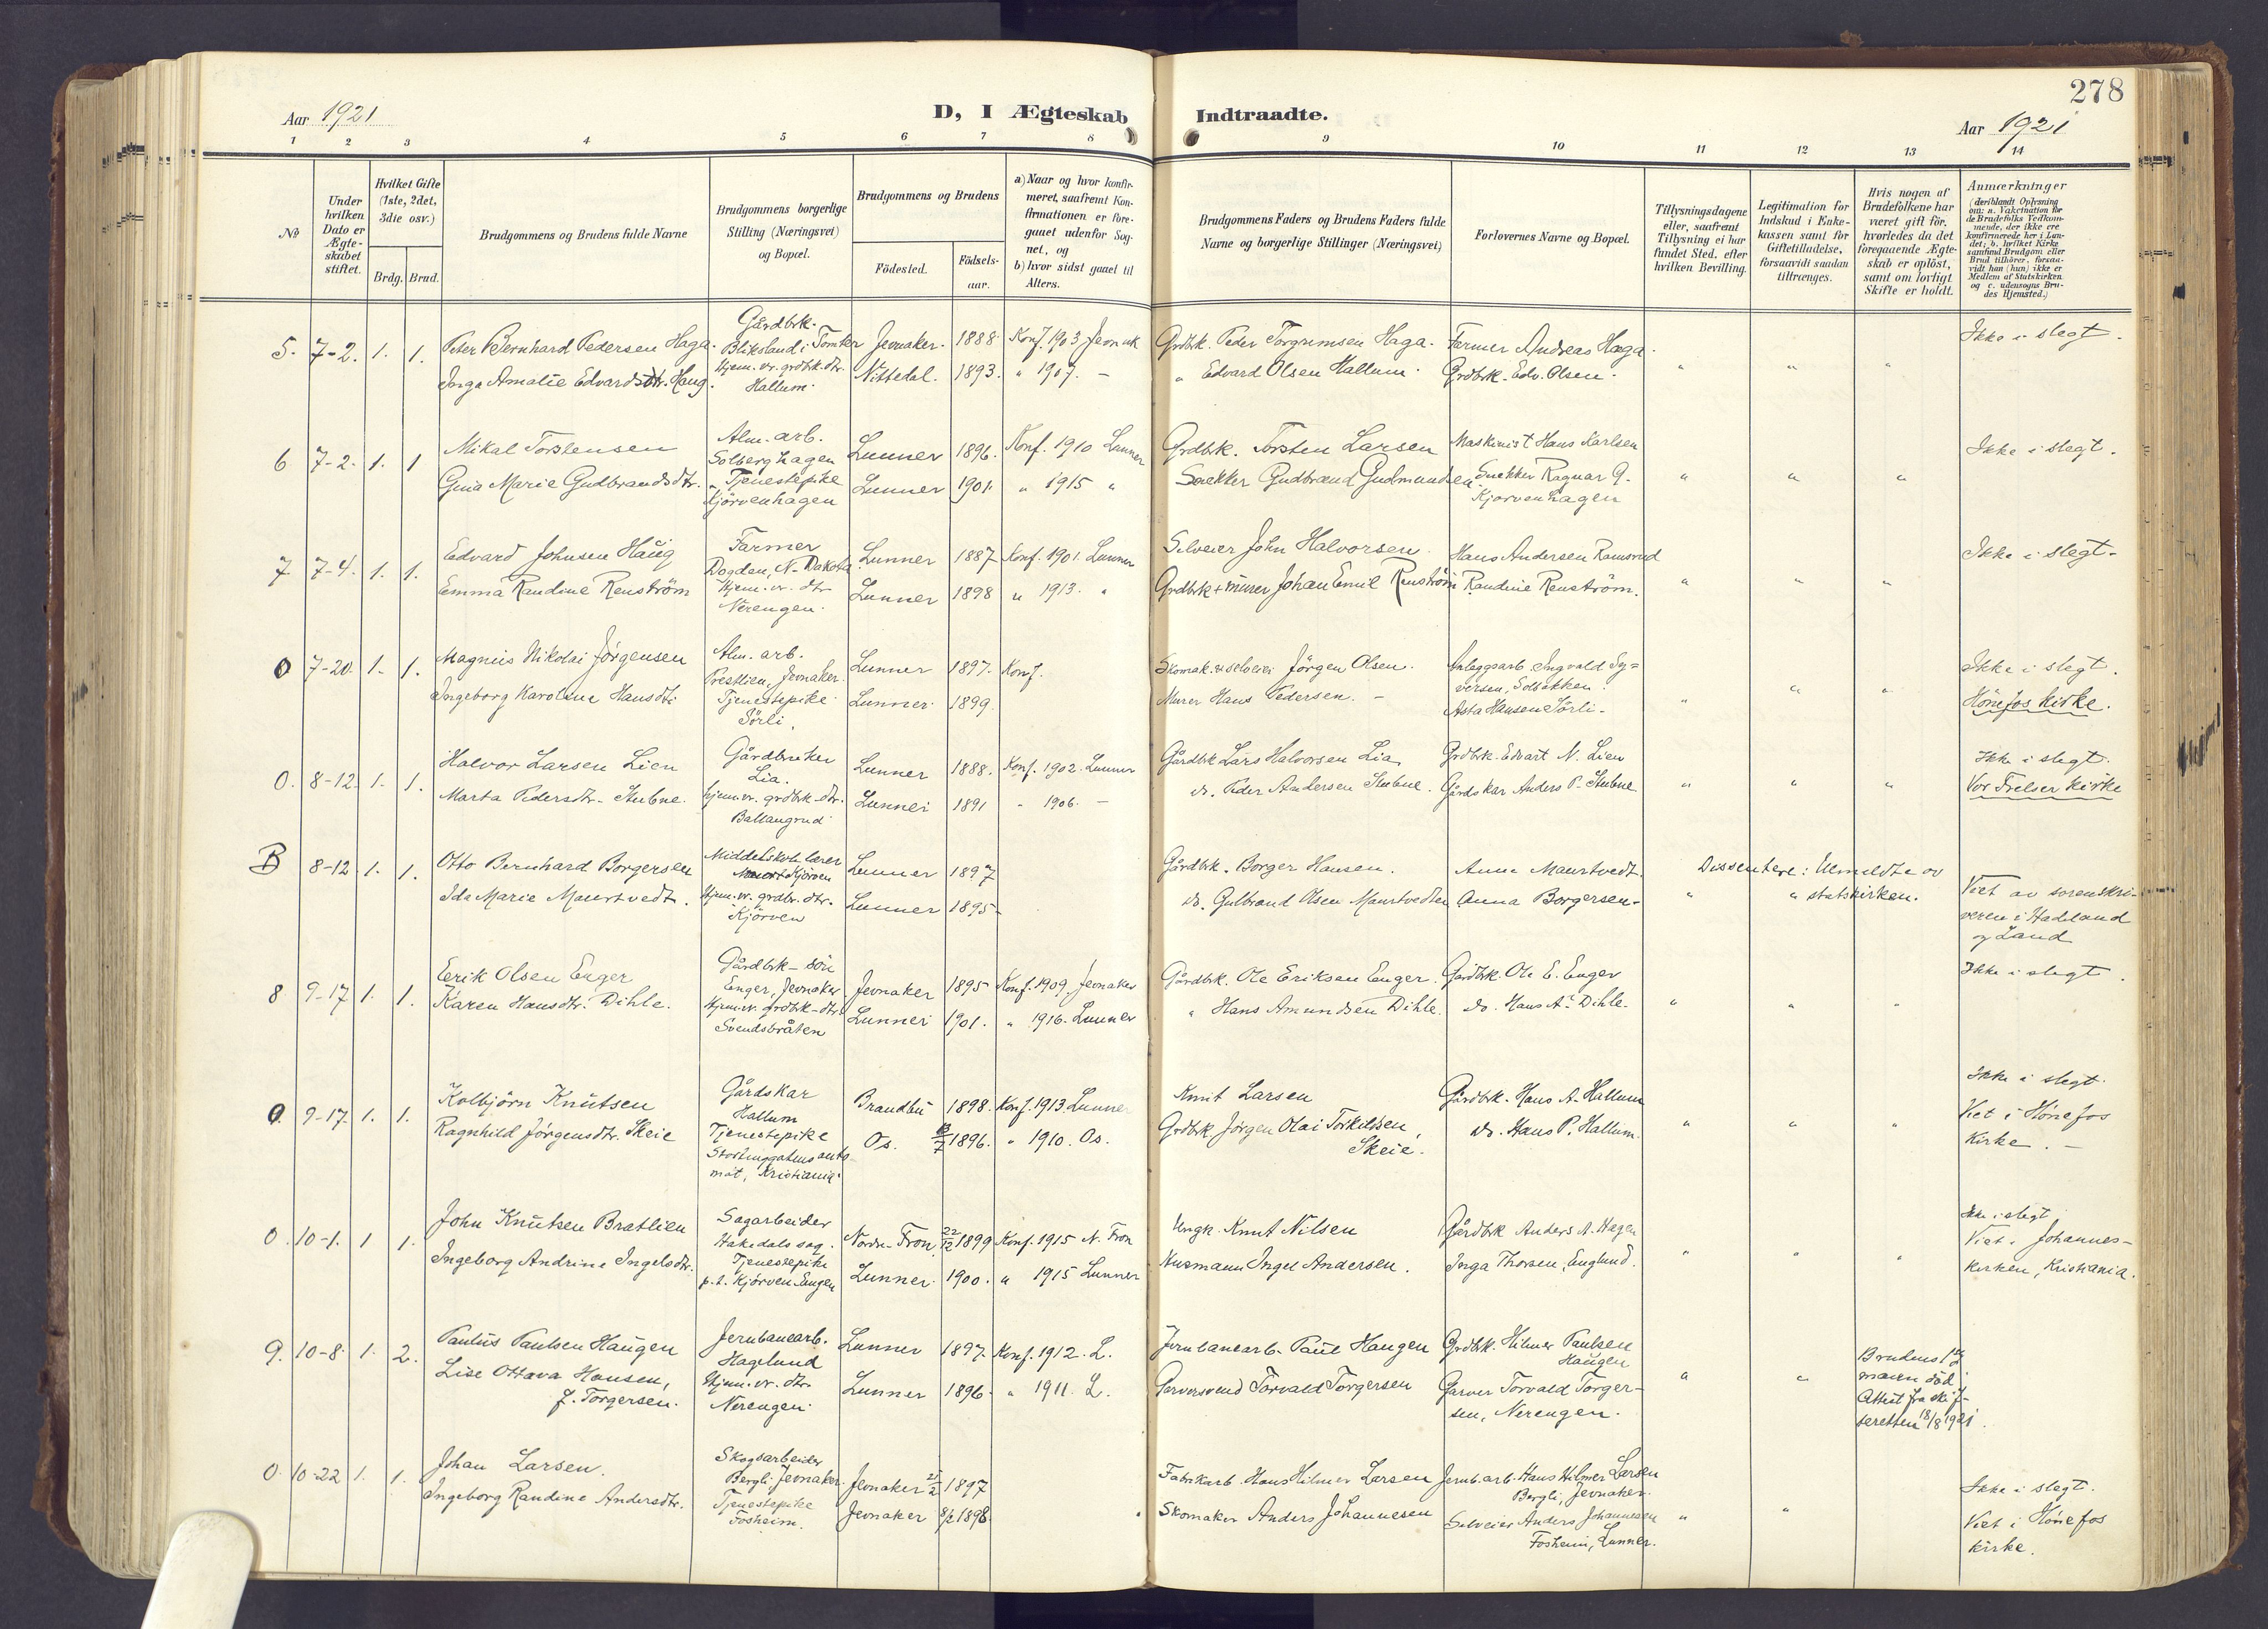 278
Aar 1921
D, I Ægteskab Indtraadte.
Aar 1921
1 2 3 4 5 6 7 8 9 10 11 12 13 14
No
Under hvilken Dato er Ægte-skabet stiftet.
Hvilket Gifte (1ste, 2det, 3die osv.)
Brdg. Brud.
Brudgommens og Brudens fulde Navne
Brudgommens borgerlige Stilling (Næringsvei) og Bopæl.
Brudgommens og Brudens
Födested.
Födsels-aar.
a) Naar og hvor konfir-meret, saafremt Kon-firmationen er fore-gaaet udenfor Sog-net, og
b) hvor sidst gaaet til Alters.
Brudgommens Faders og Brudens Faders fulde Navne og borgerlige Stillinger (Næringsvei)
Forlovernes Navne og Bopæl.
Tillysningsdagene eller, saafremt Tillysning ei har fundet Sted, efter hvilken Bevilling.
Legitimation for Indskud i Enke-kassen samt for Giftetilladelse, forsaavidt saadan tiltrænges.
Hvis nogen af Brudefolkene har været gift för, hvorledes da det foregaaende Ægte-skab er oplöst, samt om lovligt Skifte er holdt.
Anmærkninger (deriblandt Oplysning om: a. Vakcination for de Brudefolks Vedkom-mende, der ikke ere konfirmerede her i Lan-det; b. hvilket Kirke-samfund Brudgom eller Brud tilhörer, forsaa-vidt han (hun) ikke er Medlem af Statskirken og c. udensogns Bru-des Hjemsted.)
5. 7-2. 1. 1. Peter Bernhard Pedersen Haga. Gårdbrk. Bliksland i Tomter Jevnaker. 1888. Konf. 1903 Jevnak Grdbk. Peder Torgrimsen Haga. Farmer Andreas Haga. Ikke i slegt.
Inga Amalie Edvardsdtr. Haug. Hjem. vr. grdbk. dtr. Hallum. Nittedal. 1893. " 1907. - " Edvard Olsen Hallum. Grdbrk. Edv. Olsen. " " "
6 7-2. 1. 1 Mikal Torstensen Alm. arb. Solberghagen Lunner 1896. Konf. 1910 Lunner Grdbk. Torsten Larsen Maskinist Hans Karlsen Ikke i slegt.
Gina Marie Gudbrandsdtr. Tjenestepike Kjörvenhagen Lunner 1901. " 1915 " Snekker Gudbrand Gudmundsen Snekker Ragnar G. Kjörvenhagen " " "
7 7-4. 1. 1. Edvard Johnsen Haug Farmer Dogden, N-Dakota Lunner 1887 Konf. 1901. Lunner Selveier John Halvorsen. Hans Andersen Ramsrud Ikke i slegt.
Emma Randine Renström Hjem. vr. dtr. Nerengen. Lunner 1898 " 1913. " Grdbrk + murer Johan Emil Renström Randine Renström. " " "
0 7-20. 1. 1. Magnus Nikolai Jörgensen Alm. arb. Prestlien, Jevnaker. Lunner 1897. Konf. Skomak. & selveier Jörgen Olsen. Anleggsarb. Ingvald Sy=versen, Solbakken. Ikke i slegt.
Ingeborg Karoline Hansdtr Tjenestepike Sörli. Lunner 1899. Murer Hans Pedersen. - Asta Hansen Sörli. " " " Hönefos kirke.
0. 8-12. 1. 1. Halvor Larsen Lien Gårdbruker Lia. Lunner 1888. Konf. 1902. Lunner Gårdbk Lars Halvorsen Lia Grdbrk. Edvart N. Lien Ikke i slegt.
Marta Pedersdtr. Stubne. hjem. vr. grdbrk-dtr. Ballangrud Lunner 1891 " 1906. - do. Peder Andersen Stubne. Gårdskar Anders P. Stubne. " " " Vor Frelser kirke
B 8-12 1. 1. Otto Bernhard Borgersen Middelskole lærer Kjörven Lunner 1897 Gårdbk. Borger Hansen. Anna Maurtvedt. Dissentere: Utmeldte av
Ida Marie Maurtvedt. Hjem. vr. grdbr. dtr. Kjörven Lunner 1895 do. Gulbrand Olsen Maurtvedten Anna Borgersen. " " statskirken. Viet av sorenskri-veren i Hadeland og Land
8 9-17 1. 1. Eerik Olsen Enger Gårdbk-sön Enger, Jevnaker Jevnaker 1895 Konf. 1909. Jevnaker Gårdbk. Ole Eriksen Enger. Gårdbk. Ole E. Enger Ikke i slegt.
Karen Hansdtr. Dihle. Hjem. vr. grdbk-dtr. Svendsbråten Lunner 1901. " 1916. Lunner " Hans Amundsen Dihle. do. Hans A. Dihle. " " "
0 9-17. 1. 1. Kolbjörn Knutsen Gårdskar Hallum Brandbu 1898. Konf. 1913. Lunner Knut Larsen Gårdbk. Hans A. Hallum Ikke i slegt.
Ragnhild Jörgensdtr. Skeie Tjenestepike Stortingsgatens auto-mat, Kristiania. Os. 1896. " 1910. Os. Grdbk Jörgen Olai Torkildsen, Skeie. do. Hans P. Hallum. " " " Viet i Hönefos Kirke. -
0. 10-1. 1 1. John Knutsen Bratlien Sagarbeider Hakedals sag. Nordre-Fron. 22/12 1899 Konf. 1915 N. Fron Ungk. Knut Nilsen Gårdbk Anders A. Hagen Ikke i slegt
Ingeborg Andrine Ingelsdtr. Tjenestepike p. t. Kjörven Engen Lunner. 1900. " 1915 Lunner Husmann Ingel Andersen. Inga Thorsen, Englund. " " " Viet i Johannes-kirken, Kristiania.
9. 10-8. 1. 2. Paulus Paulsen Haugen Jernbanearb. Hagelund Lunner 1897. Konf. 1912. L. Jernbanearb. Paul Haugen Grdbk. Hilmer Paulsen Haugen
Lise Ottava Hansen, f. Torgersen. Hjem. vr. dtr. Nerengen. Lunner 1896. " 1911. L. Garversvend Torvald Torgersen Garver Torvald Torger-sen, Nerengen. " " Brudens 1ste mann död. Attest fra skif-teretten 18/8 1921.
0. 10-22 1. 1. Johan Larsen. Skogsarbeider Bergli, Jevnaker. Jevnaker 1897 Fabrikarb. Hans Hilmer Larsen Jernb. arb. Hans Hilmer Larsen Bergli, Jevnaker. Ikke i slegt.
Ingeborg Randine Andersdtr. Tjenestepike Fosheim. Jevnaker 1898. Skomaker Anders Johannesen Selveier Anders Johannesen Fosheim, Lunner. " " Viet i Hönefos kirke.